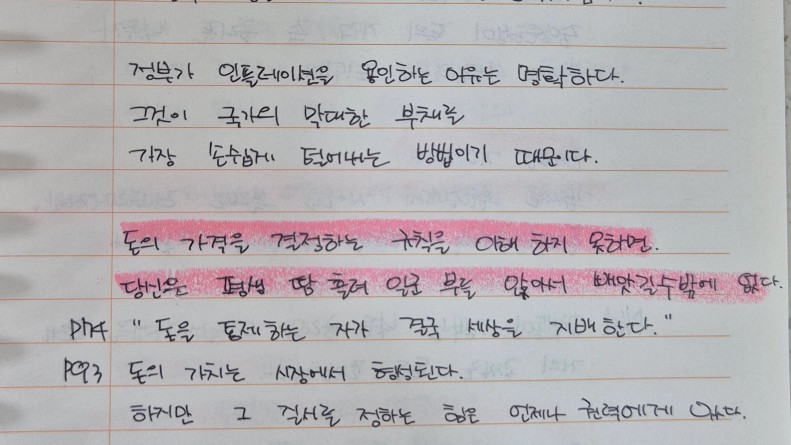 정부가 인플레이션을 용인하는 이유는 명확하다.
그것이 국가의 막대한 부채를
가장 손쉽게 털어내는 방법이기 때문이다.
돈의 가격을 결정하는 규칙을 이해 하지 못하면.
당신은 평생 땀 흘려 일군 부를 앉아서 빼앗길수밖에 없다.
P74 "돈을 통제하는 자가 결국 세상을 지배한다."
P93 돈의 가치는 시장에서 형성된다.
하지만 그 질서를 정하는 힘은 언제나 권력에게 있다.